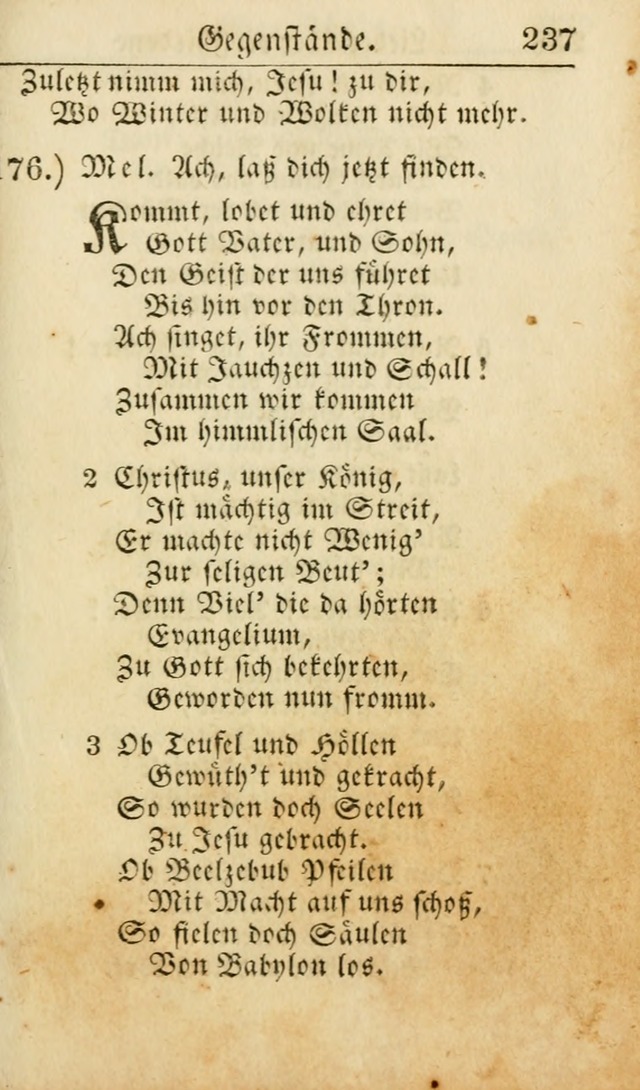 Gegenstände. 237
Zuletzt nimm mich, Jesu! zu dir,
Wo Winter und Wolken nicht mehr.
176.) Mel. Ach, laß dich jetzt finden.
Kommt, lobet und ehret
Gott Vater, und Sohn,
Den Geist der uns führet
Bis hin vor den Thron.
Ach singet, ihr Frommen,
Mit Jauchzen und Schall!
Zusammen wir kommen
Im himmlischen Saal.
2 Christus, unser König,
Ist mächtig im Streit,
Er machte nicht Wenig'
Zur seligen Beut';
Denn Viel' die da hörten
Evangelium,
Zu Gott sich bekehrten,
Geworden nun fromm.
3 Ob Teufel und Höllen
Gewüth't und gekracht,
So wurden doch Seelen
Zu Jesu gebracht.
Ob Beelzebub Pfeilen
Mit Macht auf uns schoß,
So fielen doch Säulen
Von Babylon los.